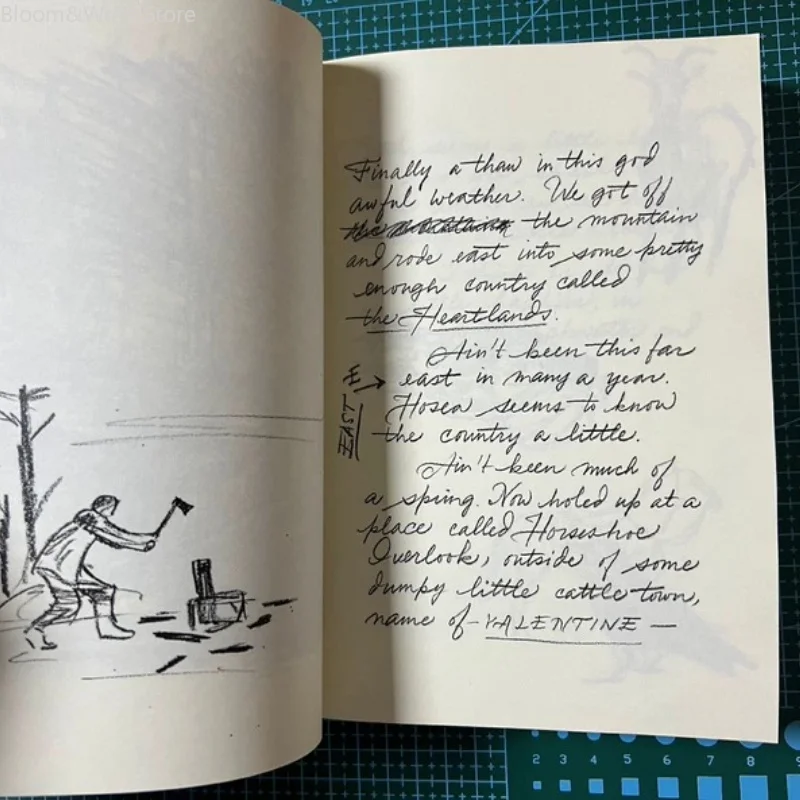 Bloom&W Store
Finally a thaw in this god
awful weather. We got off
the mountain the mountain
and rode east into some pretty
enough country called
the Heartlands.
Ain't been this far
east in many a year.
Hosea seems to know
the country a little.
EAST
Ain't been much of
a spring. Now holed up at a
place called Horseshoe
Overlook, outside of some
dumpy little cattle town,
name of - VALENTINE —
2 3 4 5 6 7 8 9